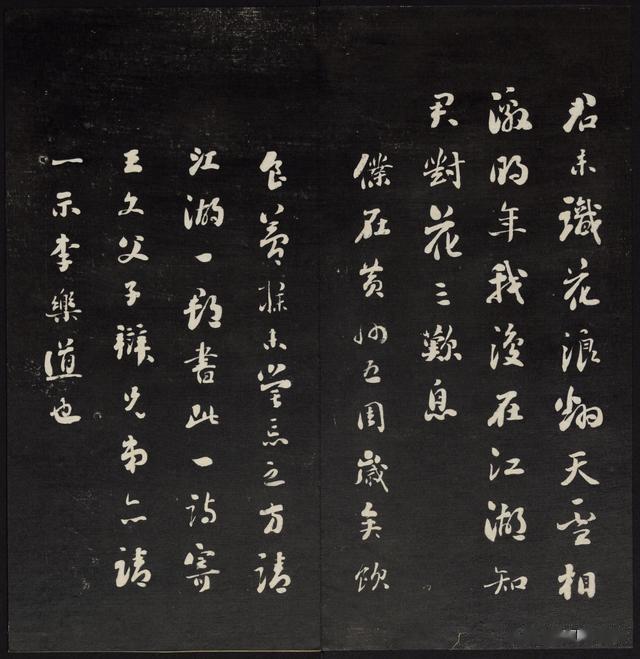 君未識花浪翻天雪相
激明年我復在江湖知
君對花三歎息
僕在黃州五周歲矣飲
食夢寐未嘗忘之方請
江湖一郡書此一詩寄
王文父子辯兄弟亦請
一示李樂道也